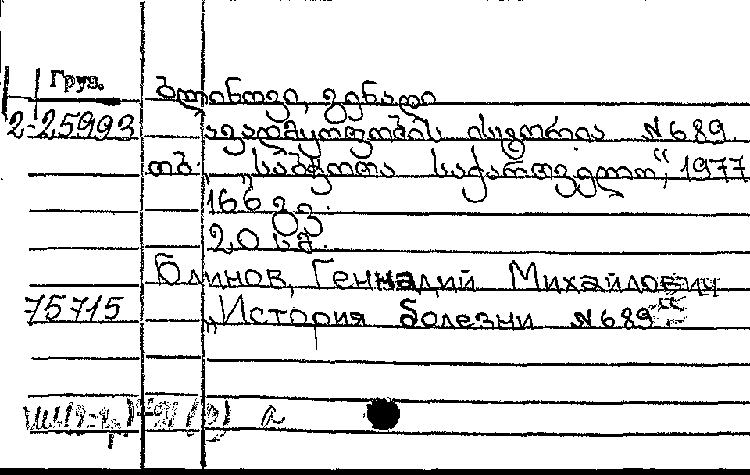 Груз.
ბლინოვი, გენადი
2-25993 ავადმყოფობის ისტორია №689.
თბ. „საბჭოთა საქართველო“, 1977
166 გვ.
20 კპ.
Блинов, Геннадий Михайлович
75715 „История болезни №689“
а